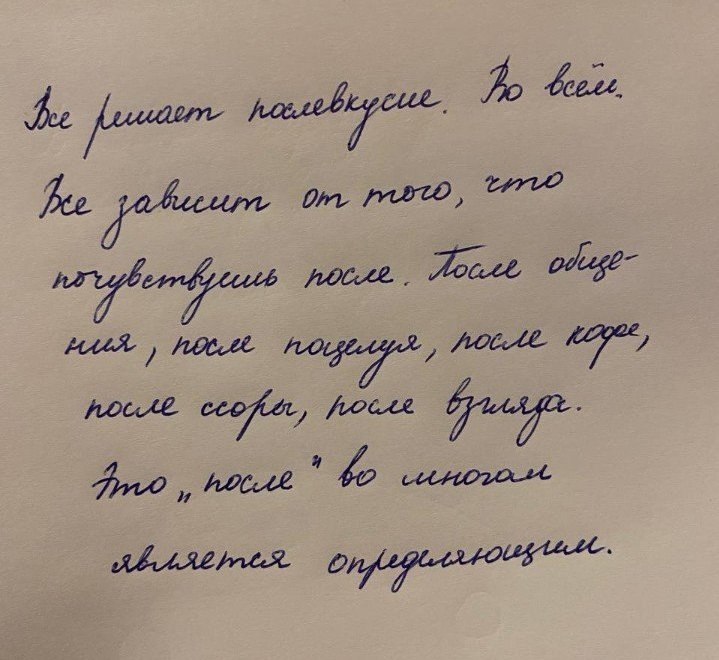 Все решает послевкусие. Во всём.
Все зависит от того, что
почувствуешь после. После обще-
ния, после поцелуя, после кофе,
после ссоры, после взгляда.
Это „после" во многом
является определяющим.